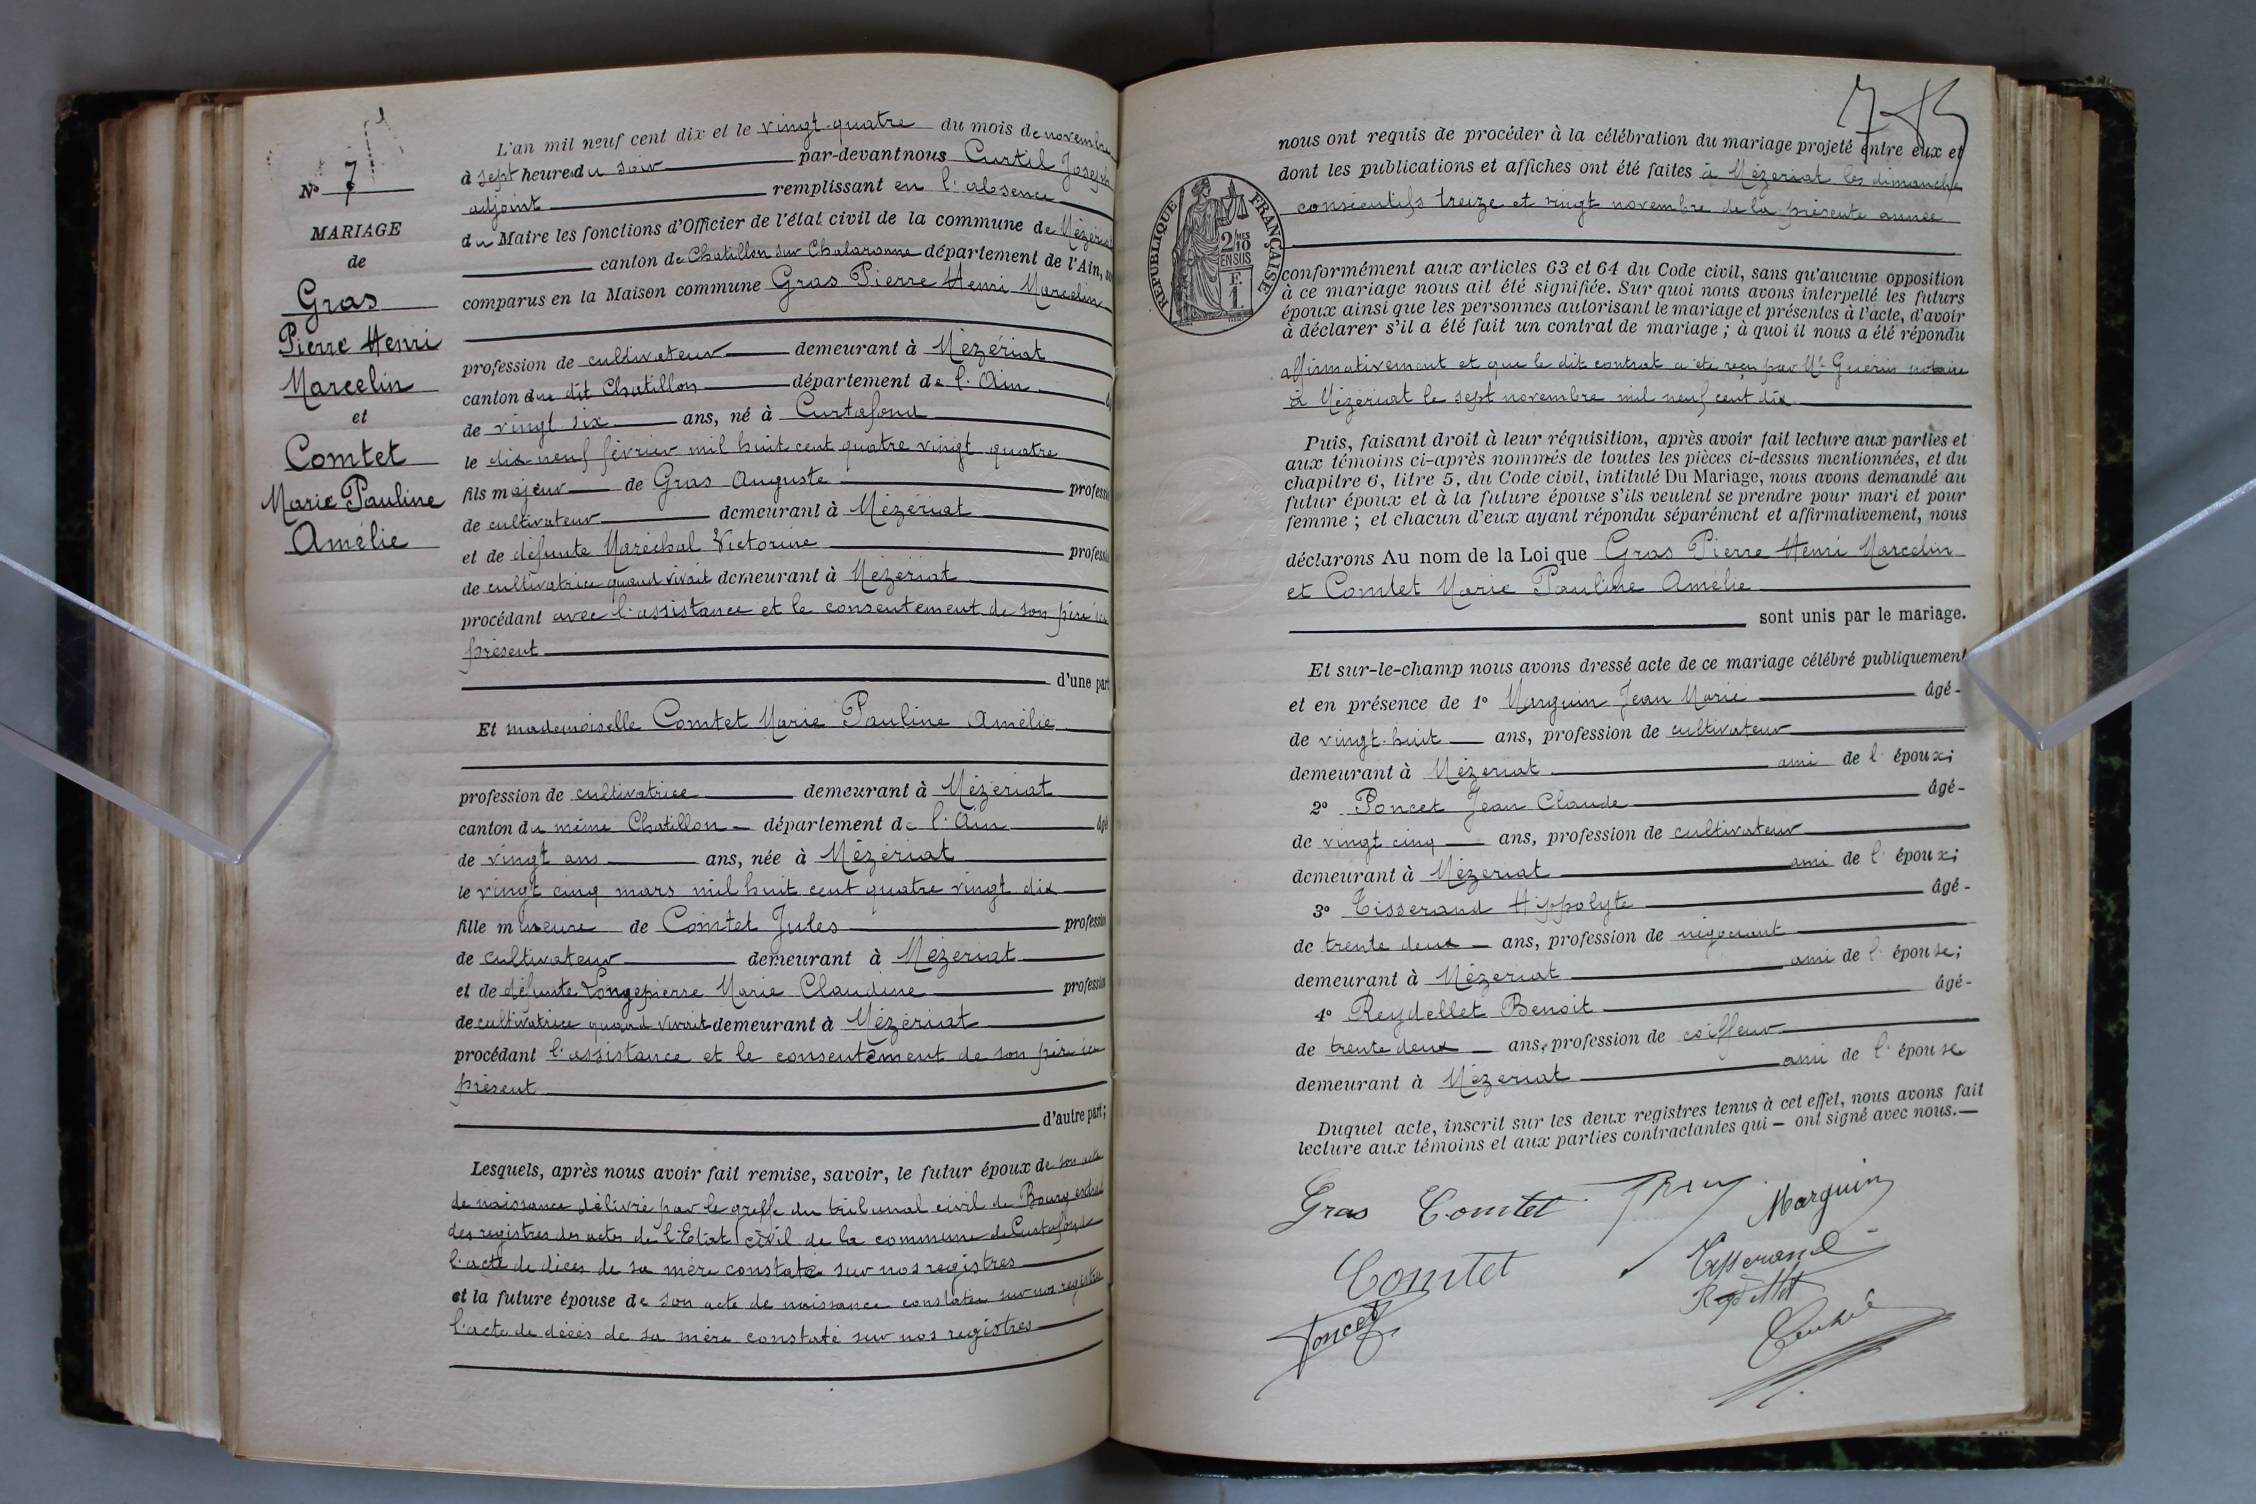 N° 7
MARIAGE
de
Gras
Pierre Henri
Marcelin
et
Comtet
Marie Pauline
Amélie
L'an mil neuf cent dix et le vingt-quatre du mois de novembre
à sept heures du soir par-devant nous Curtil Joseph
adjoint remplissant en l'absence
du Maire les fonctions d'Officier de l'état civil de la commune de Mézériat
canton de Chatillon sur Chalaronne département de l'Ain,
comparus en la Maison commune Gras Pierre Henri Marcelin
profession de cultivateur demeurant à Mézériat
canton du dit Chatillon département de l'Ain
de vingt six ans, né à Curtafond
le dix neuf février mil huit cent quatre vingt quatre
fils majeur de Gras Auguste profession
de cultivateur demeurant à Mézériat
et de défunte Maréchal Victorine profession
de cultivatrice quand vivait demeurant à Mézériat
procédant avec l'assistance et le consentement de son père ici
présent
d'une part
Et mademoiselle Comtet Marie Pauline Amélie
profession de cultivatrice demeurant à Mézériat
canton du même Chatillon département de l'Ain âgé
de vingt ans ans, née à Mézériat
le vingt cinq mars mil huit cent quatre vingt dix
fille mineure de Comtet Jules profession
de cultivateur demeurant à Mézériat
et de défunte Longepierre Marie Claudine profession
de cultivatrice quand vivait demeurant à Mézériat
procédant l'assistance et le consentement de son père ici
présent
d'autre part;
Lesquels, après nous avoir fait remise, savoir, le futur époux de son acte
de naissance délivré par le greffe du tribunal civil de Bourg extrait
des registres des actes de l'Etat civil de la commune de Curtafond
l'acte de décès de sa mère constaté sur nos registres
et la future épouse de son acte de naissance constaté sur nos registres
l'acte de décès de sa mère constaté sur nos registres
nous ont requis de procéder à la célébration du mariage projeté entre eux et
dont les publications et affiches ont été faites à Mézériat les dimanches
consécutifs treize et vingt novembre de la présente année
RÉPUBLIQUE FRANÇAISE
2/10 MES
EN SUS
F.
1
conformément aux articles 63 et 64 du Code civil, sans qu'aucune opposition
à ce mariage nous ait été signifiée. Sur quoi nous avons interpellé les futurs
époux ainsi que les personnes autorisant le mariage et présentes à l'acte, d'avoir
à déclarer s'il a été fait un contrat de mariage ; à quoi il nous a été répondu
affirmativement et que le dit contrat a été reçu par Me Guérin notaire
à Mézériat le sept novembre mil neuf cent dix
Puis, faisant droit à leur réquisition, après avoir fait lecture aux parties et
aux témoins ci-après nommés de toutes les pièces ci-dessus mentionnées, et du
chapitre 6, titre 5, du Code civil, intitulé Du Mariage, nous avons demandé au
futur époux et à la future épouse s'ils veulent se prendre pour mari et pour
femme ; et chacun d'eux ayant répondu séparément et affirmativement, nous
déclarons Au nom de la Loi que Gras Pierre Henri Marcelin
et Comtet Marie Pauline Amélie
sont unis par le mariage.
Et sur-le-champ nous avons dressé acte de ce mariage célébré publiquement
et en présence de 1° Marguin Jean Marie âgé-
de vingt-huit ans, profession de cultivateur
demeurant à Mézériat ami de l'époux;
2° Poncet Jean Claude âgé-
de vingt cinq ans, profession de cultivateur
demeurant à Mézériat ami de l'époux;
3° Tisserand Hippolyte âgé-
de trente deux ans, profession de négociant
demeurant à Mézériat ami de l'épouse;
4° Reydellet Benoit âgé-
de trente deux ans, profession de coiffeur
demeurant à Mézériat ami de l'épouse
Duquel acte, inscrit sur les deux registres tenus à cet effet, nous avons fait
lecture aux témoins et aux parties contractantes qui – ont signé avec nous.—
Gras Comtet Marguin
Comtet Tisserand
Reydellet
Poncet